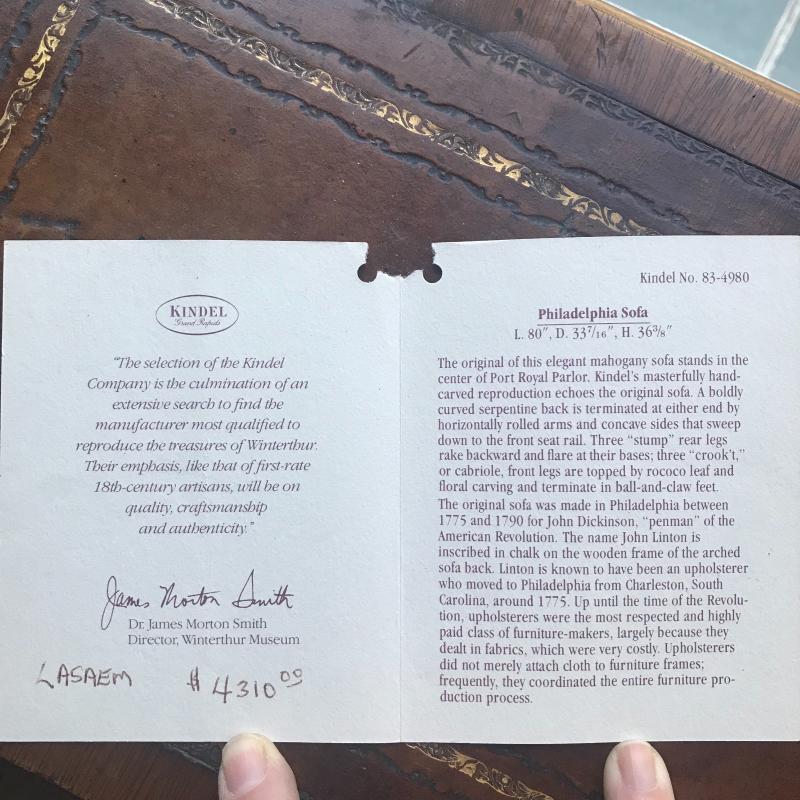 KINDEL
Grand Rapids
"The selection of the Kindel
Company is the culmination of an
extensive search to find the
manufacturer most qualified to
reproduce the treasures of Winterthur.
Their emphasis, like that of first-rate
18th-century artisans, will be on
quality, craftsmanship
and authenticity."
James Morton Smith
Dr. James Morton Smith
Director, Winterthur Museum
LASAEM $4310.00
Kindel No. 83-4980
Philadelphia Sofa
L. 80", D. 33 7/16", H. 36 3/8"
The original of this elegant mahogany sofa stands in the
center of Port Royal Parlor. Kindel's masterfully hand-
carved reproduction echoes the original sofa. A boldly
curved serpentine back is terminated at either end by
horizontally rolled arms and concave sides that sweep
down to the front seat rail. Three "stump" rear legs
rake backward and flare at their bases; three "crook't,"
or cabriole, front legs are topped by rococo leaf and
floral carving and terminate in ball-and-claw feet.
The original sofa was made in Philadelphia between
1775 and 1790 for John Dickinson, "penman" of the
American Revolution. The name John Linton is
inscribed in chalk on the wooden frame of the arched
sofa back. Linton is known to have been an upholsterer
who moved to Philadelphia from Charleston, South
Carolina, around 1775. Up until the time of the Revolu-
tion, upholsterers were the most respected and highly
paid class of furniture-makers, largely because they
dealt in fabrics, which were very costly. Upholsterers
did not merely attach cloth to furniture frames;
frequently, they coordinated the entire furniture pro-
duction process.